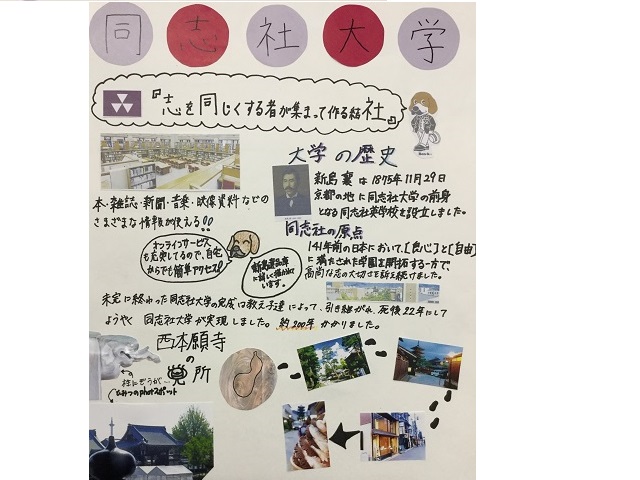 同志社大学
『志を同じくする者が集まって作る結社』
大学の歴史
新島 襄 は 1875年11月29日
京都の地に同志社大学の前身
となる同志社英学校を設立しました。
本・雑誌・新聞・音楽・映像資料などの
さまざまな情報が使える!!
同志社の原点
141年前の日本において、[良心]と[自由]
に満たされた学園を開拓する一方で、
高尚な志の大切さを訴え続けました。
オンラインサービス
も充実してるので、自宅
からでも簡単アクセス!
未完に終わった同志社大学の完成は教え子達によって、引き継がれ、死後22年にして
ようやく 同志社大学が実現しました。約200年 かかりました。
西本願寺
の
見所
柱にぞうが…
ひみつのphotoスポット